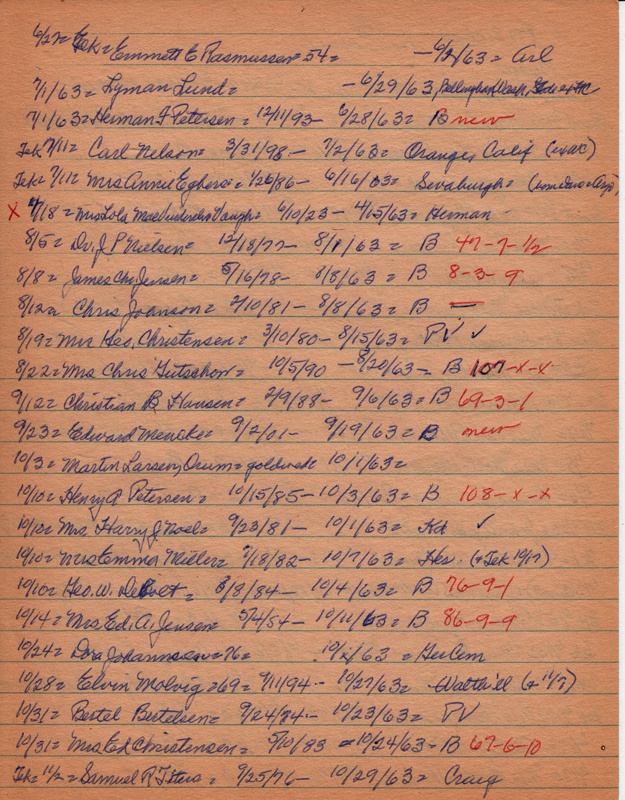 6/27= Tek= Emmett E Rasmussen= 54= — 6/2/63= Arl
7/1/63= Lyman Lund= — 6/29/63, Bellingham Wash,
7/1/63= Herman F Petersen= 12/11/93— 6/28/63= B new
Tek 7/11= Carl Nelson= 3/31/98— 7/2/63= Orange, Calif
Tek= 7/11= Mrs Annie Eghers= 1/26/86— 6/16/63=
X 7/18= Mrs Lola Mae 6/10/23— 4/15/63= Herman
8/5= Dr. J P Nielsen= 12/18/77— 8/1/63= B 47-7-1/2
8/8= James Chr Jensen= 5/16/78— 8/8/63= B 8-3-9
8/12= Chris Johnson= 2/10/81— 8/8/63= B —
8/19= Mrs Geo. Christensen= 3/10/80— 8/15/63= PV ✓
8/22= Mrs Chris Gutschow= 10/5/90 — 8/20/63= B 107-x-x
9/12= Christian B Hansen= 2/9/88— 9/6/63= B 69-3-1
9/23= Edward Mencke= 9/2/01— 9/19/63= B new
10/3= Martin Larsen, Orum= goldwedd 10/1/63=
10/10= Henry A Petersen= 10/15/85— 10/3/63= B 108-x-x
10/10= Mrs Harry J Noel= 9/23/81— 10/1/63= Kd ✓
10/10= Mrs Emma Miller= 7/18/82— 10/7/63= Her. (+Tek 10/17)
10/10= Geo. W. DeBolt= 3/8/84— 10/4/63= B 76-9-1
10/14= Mrs Ed. A. Jensen= 5/4/84— 10/11/63= B 86-9-9
10/24= Dora Johannsen= 76= 10/ /63= GerCem
10/28= Elvin Molvig= 69= 9/11/94— 10/27/63= Walthill
10/31= Bertel Bertelsen= 9/24/84— 10/23/63= PV
10/31= Mrs Ed Christensen= 5/10/83 = 10/24/63= B 67-6-10
Tek= 11/2= Samuel R = 9/25/76— 10/29/63= Craig